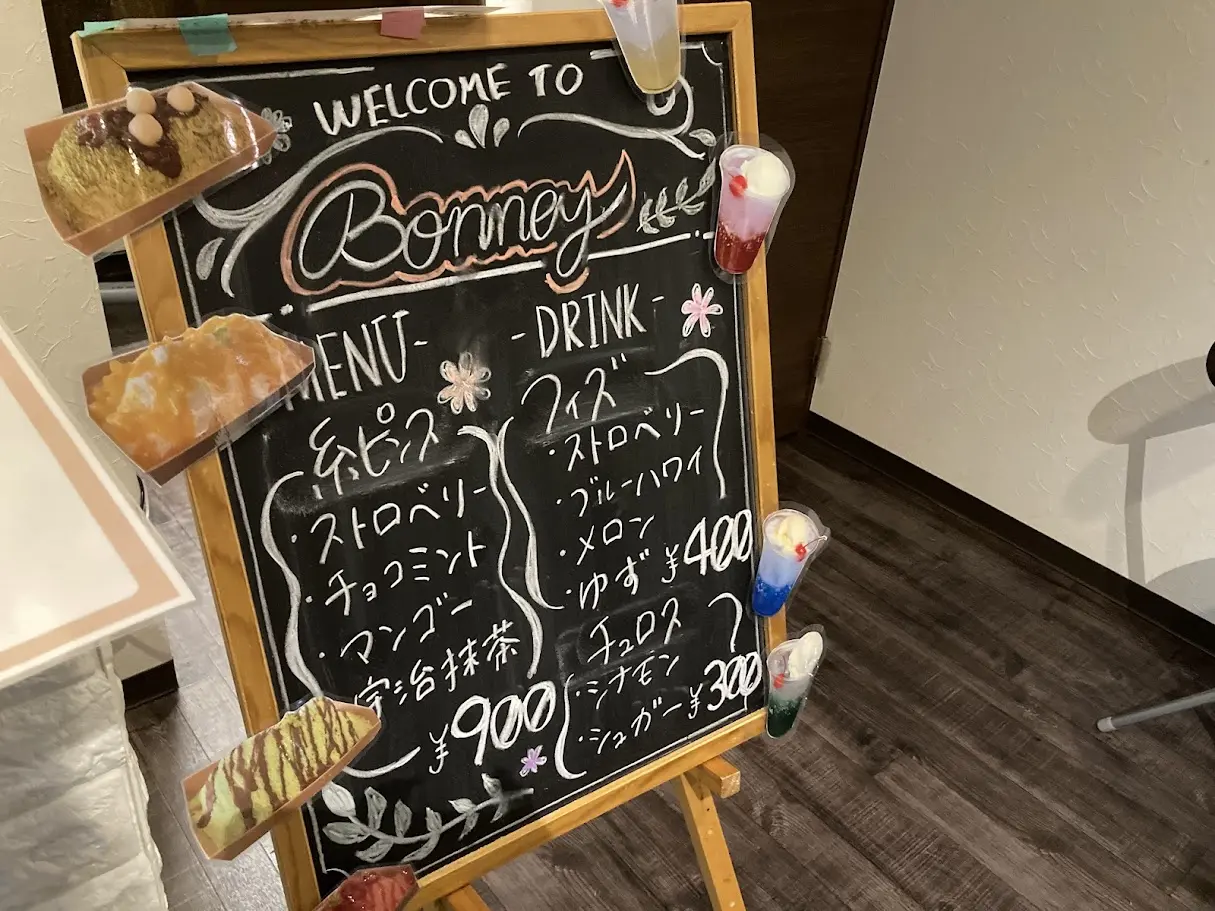 WELCOME TO
Bonney
MENU-
糸ピンス
・ストロベリー
・チョコミント
・マンゴー
・宇治抹茶
¥900
-DRINK-
フィズ
・ストロベリー
・ブルーハワイ
・メロン
・ゆず ¥400
チュロス
・シナモン
・シュガー ¥300